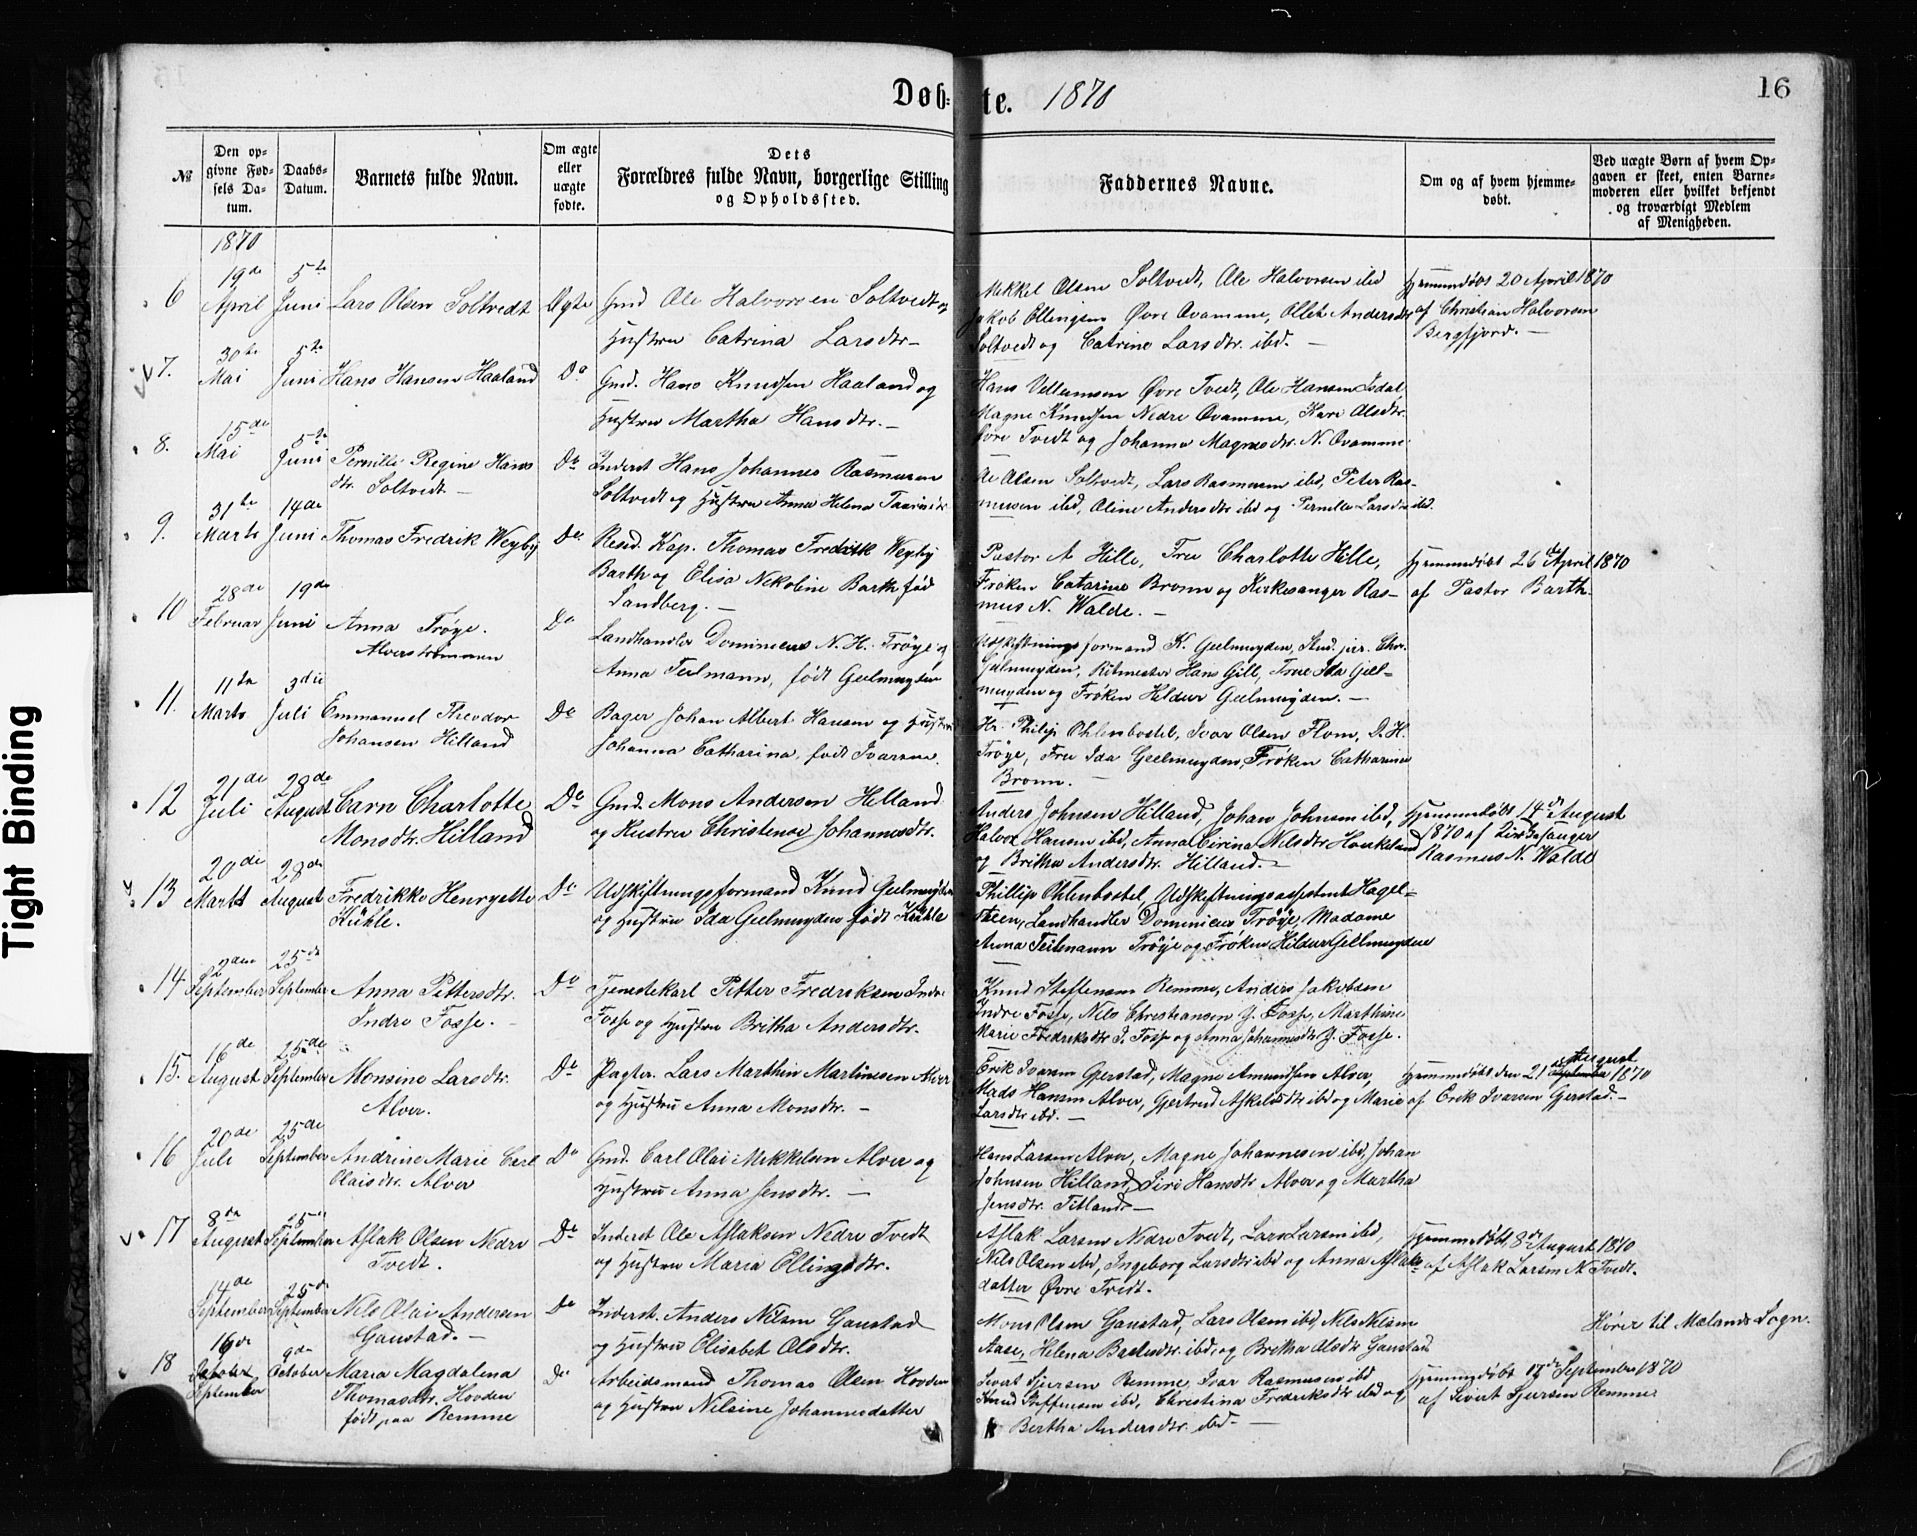 Døb=te. 1870
16
Tight Binding
№
Den op=
givne Fød=
sels Da=
tum.
Daabs=
Datum.
Barnets fulde Navn.
Om ægte
eller
uægte
fødte.
Dets
Forældres fulde Navn, borgerlige Stilling
og Opholdssted.
Faddernes Navne.
Om og af hvem hjemme=
døbt.
Ved uægte Børn af hvem Op=
gaven er skeet, enten Barne=
moderen eller hvilket bekjendt
og troværdigt Medlem
af Menigheden.
1870
6 19de April 5te Juni Lars Olsen Soltvedt Ægte Gmd Ole Halvorsen Soltvedt og
Hustru Catrina Larsdtr.
Mikkel Olsen Soltvedt, Ole Halvorsen ibd
Jakob Ellingsen Øvre Qvamme, Andersdtr
Soltvedt og Catrine Larsdtr. ibd. —
Hjemmedøbt 20 April 1870
af Christian Halvorsen
Bergfjord. —
7. 30te Mai 5te Juni Hans Hansen Haaland Do Gmd. Hans Knudsen Haaland og
Hustru Martha Hansdtr. —
Hans Øvre Tvedt, Ole Hansen Isdal,
Magne Knudsen Nedre Qvamme, Kari Olsdtr.
Øvre Tvedt og Johanna Magnesdtr. N. Qvamme
8. 15de Mai 5te Juni Pernille Regine Hans
dtr. Soltvedt — Do Inderst Hans Johannes Rasmusen
Soltvedt og Hustru Anna Helena
Ole Olsen Soltvedt, Lars Rasmusen ibd, Peter Ras-
musen ibd, Oline Andersdtr ibd og Pernille Larsdtr ibd.
9. 31te Marts 14de Juni Thomas Fredrik Weyby Do Resd. Kap. Thomas Fredrik Weyby
Barth og Elisa Nikoline Barth, født
Sandberg. —
Pastor A Hille, Frue Charlotte Hille,
Frøken Catarine Bronn og Kirkesanger Ras-
mus N. Walde. —
Hjemmedøbt 26de April 1870
af Pastor Barth.
10 28de Februar 19de Juni Anna Trøye.
Alverstrømmen Do Landhandler Dominicus N. H. Trøye og
Anna Teilmann, født Geelmuyden
Udskiftningsformand K. Geelmuyden, Stud. jur. Chr.
Geelmuyden, Ritmester Hans Gill, Frue Ida Geel-
muyden og Frøken Hildur Geelmuyden. —
11. 11te Marts 3die Juli Emmanuel Theodor
Johansen Hilland Do Bager Johan Albert Hansen og Hustru
Johanna Catharina, født Ivarsen.
Hr. Philip Ohlenbostel, Ivar Olsen Flom, D. H.
Trøye, Frue Ida Geelmuyden, Frøken Catharina
Bronn. —
12 21de Juli 28de August Carn Charlotte
Monsdtr. Hilland Do Gmd. Mons Andersen Hilland
og Hustru Christense Johannesdtr.
Anders Johnsen Hilland, Johan Johnsen ibd,
Halvor Hansen ibd, Anna Cirina Nilsdtr
og Britha Andersdtr. Hilland. —
Hjemmedøbt 14de August
1870 af Kirkesanger
Rasmus N. Walde
13 20de Marts 28de August Fredrikke Henryette
Kühle. Do Udskiftningsformand Knud Geelmuyden
og Hustru Ida Geelmuyden født Kühle
Phillip Ohlenbostel, Udskiftningsassistent Hagel-
steen, Landhandler Dominicus Trøye, Madame
Anna Teilmann Trøye og Frøken Hildur Geelmuyden
14 2den September 25de September Anna Pittersdtr.
Indre Fosse. — Do Tjenestekarl Pitter Fredriksen Indre
Fosse og Hustru Britha Andersdtr.
Knud Steffensen Remme, Anders Jakobsen
Indre Fosse, Nils Christiansen I. Fosse, Marthine
Marie Fredriksdtr I. Fosse og Anna Johannesdtr I. Fosse.
15. 16de August 25de September Monsine Larsdtr.
Alver. Do Pagter. Lars Marthin Martinesen Alver
og Hustru Anna Monsdtr. —
Erik Ivarsen Gjerstad, Magne Amundsen Alver,
Mads Hansen Alver, Gjertrud Askelsdtr ibd og Marie
Larsdtr ibd. —
Hjemmedøbt den 21de August 1870
af Erik Ivarsen Gjerstad. —
16 20de Juli 25de September Andrine Marie Carl
Olaisdtr. Alver Do Gmd. Carl Olai Mikkelsen Alver og
Hustru Anna Jensdtr. —
Hans Larsen Alver, Magne Johannesen ibd, Johan
Johnsen Hilland, Siri Hansdtr Alver og Martha
Jensdtr. Titland. —
17 8de August 25de September Aslak Olsen Nedre
Tvedt. Do Inderst Ole Aslaksen Nedre Tvedt
og Hustru Maria Ellingsdtr.
Aslak Larsen Nedre Tvedt, Lars Larsen ibd,
Nils Olsen ibd, Ingeborg Larsdtr ibd og Anna Aslaks-
datter Øvre Tvedt.
Hjemmedøbt, 8de August 1870
af Aslak Larsen N. Tvedt.
14de September 25de September Nils Olai Andersen
Gaustad. — Do Inderst. Anders Nilsen Gaustad
og Hustru Elisabet Olsdtr.
Mons Olsen Gaustad, Lars Olsen ibd, Nils Nilsen
Aase, Helena ibd, og Britha Olsdtr Gaustad
Hører til Mælands Sogn.
18 16de October September 9de October Maria Magdalena
Thomasdtr. Hovden
født paa Remme Do Arbeidsmand Thomas Olsen Hovden
og Hustru Nilsine Johannesdatter
Sivert Sjursen Remme, Ivar Rasmusen ibd
Knud Steffensen ibd, Christina Fredriksdtr ibd og
Bertha Andersdtr. ibd. —
Hjemmedøbt 17de September 1870
af Sivert Sjursen Remme